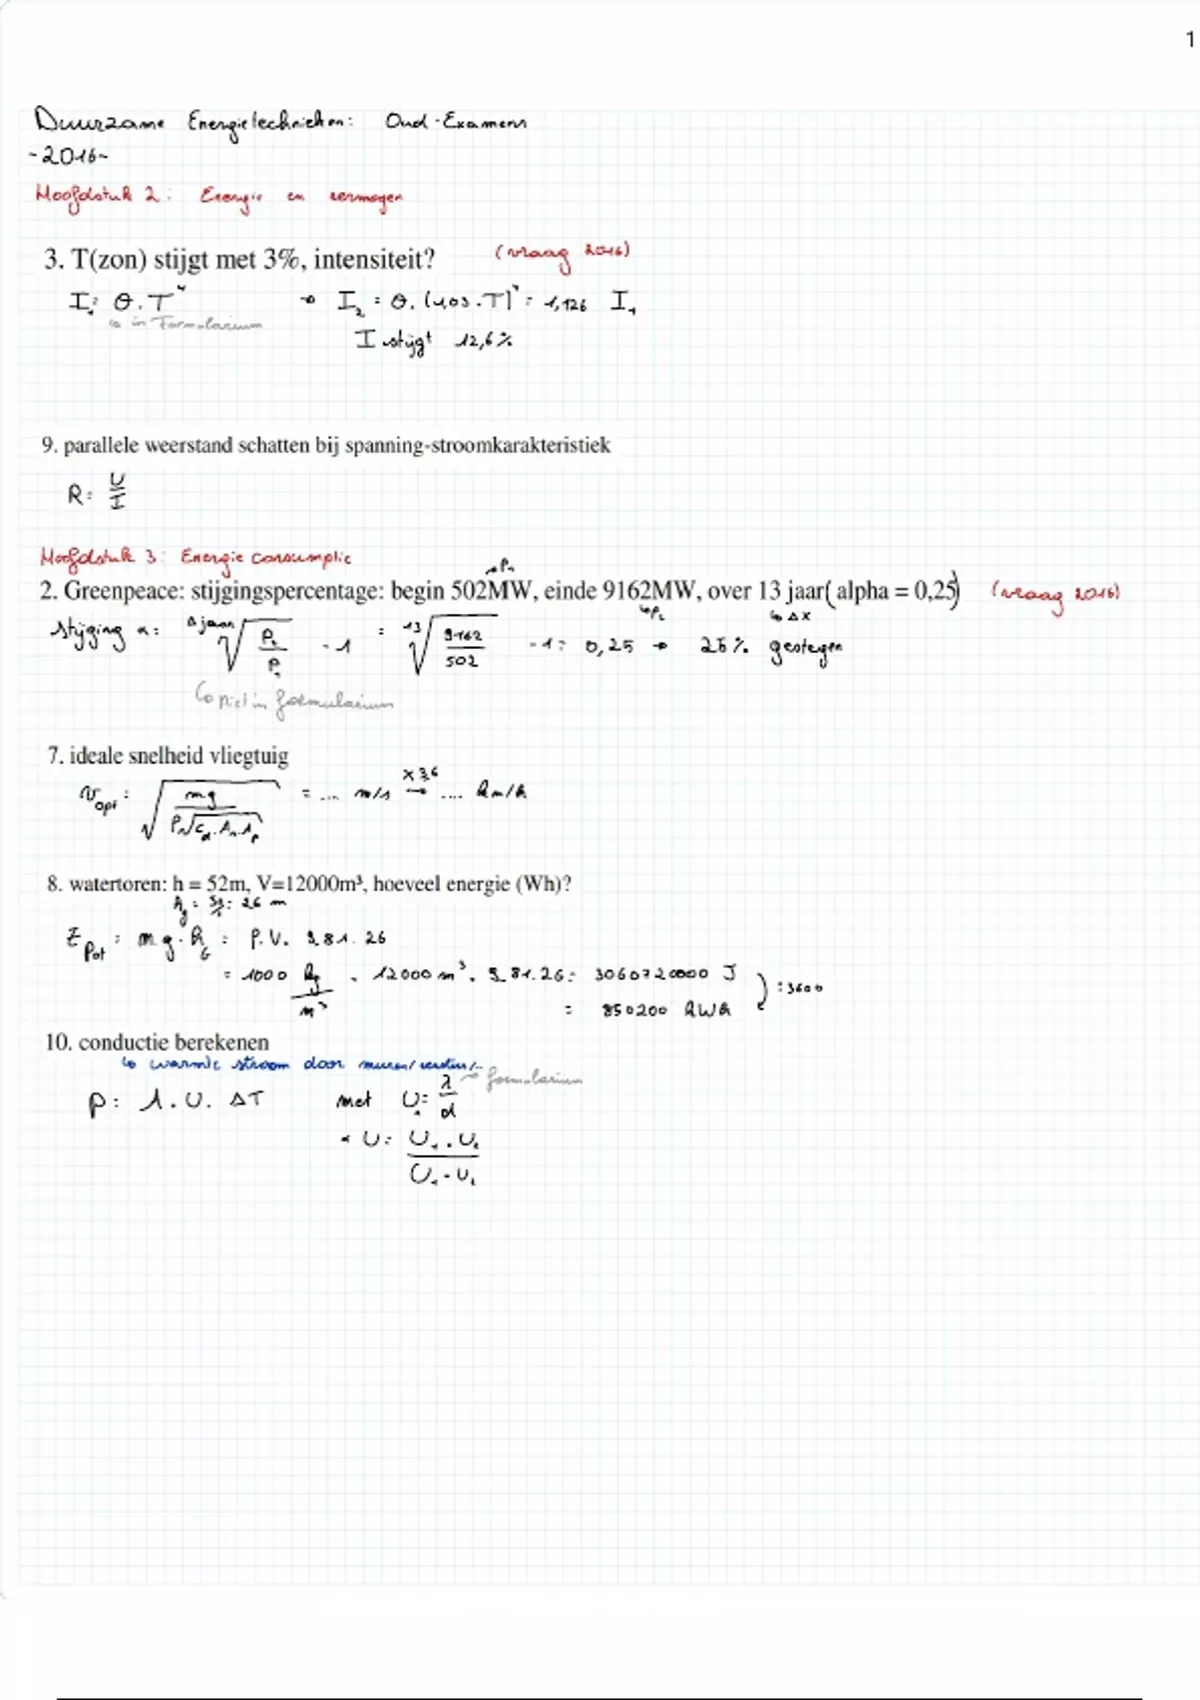 1
Duurzame Energietechnieken: Oud-Examens
-2016-
Hoofdstuk 2: Energie en vermogen
3. T(zon) stijgt met 3%, intensiteit? (vraag 2016)
I₁ = θ.T⁴ → I₂ = θ.(1,03.T)⁴ = 1,126 I₁
↳ in Formularium
I stijgt 12,6%
9. parallele weerstand schatten bij spanning-stroomkarakteristiek
R = U/I
Hoofdstuk 3: Energie consumptie
→P₁
2. Greenpeace: stijgingspercentage: begin 502MW, einde 9162MW, over 13 jaar (alpha = 0,25) (vraag 2016)
↳P₂ ↳ΔX
Stijging α = Δjaar√(P₂/P₁) - 1 = 13√(9162/502) - 1 = 0,25 → 25% gestegen
↳ niet in formularium
7. ideale snelheid vliegtuig
v opt = √(mg/(ρ√(c_d.A_v.A_p))) = ... m/s ×3,6 → .... km/h
8. watertoren: h = 52m, V=12000m³, hoeveel energie (Wh)?
h_g = 52/2 = 26 m
E pot = m g . h_G = ρ.V. 9,81. 26
= 1000 kg/m³ . 12000 m³ . 9,81.26 = 3060720000 J
= 850200 kWh :3600
10. conductie berekenen
↳ warmte stroom door muren/vensters/..
→ formularium
P = A.U. ΔT met U = λ/d
U = U₁.U₂/(U₁+U₂)